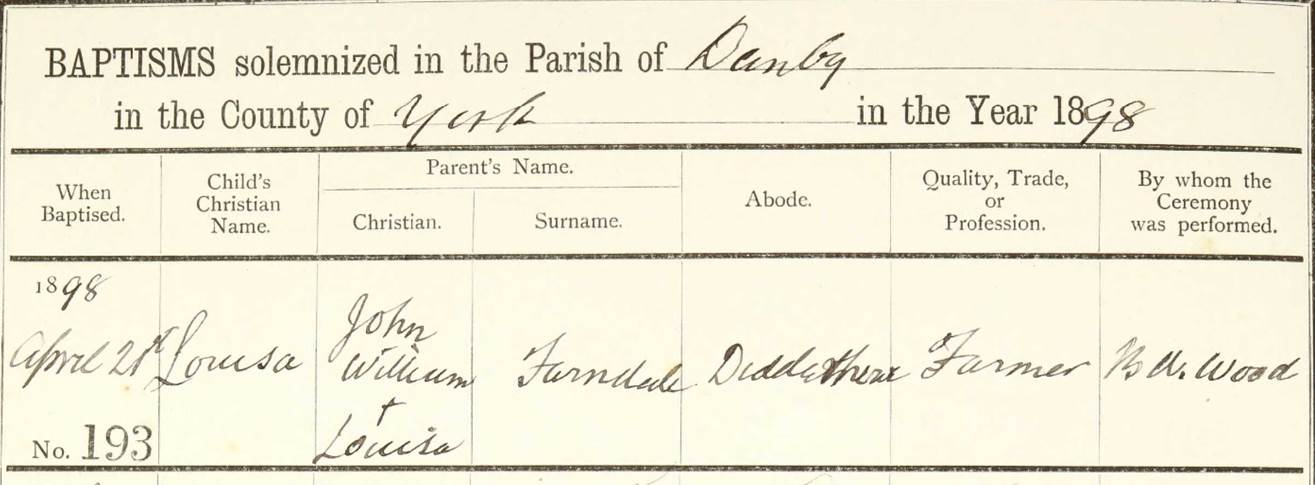 BAPTISMS solemnized in the Parish of Danby
in the County of York in the Year 1898
When Baptised.
Child's Christian Name.
Parent's Name.
Christian.
Surname.
Abode.
Quality, Trade, or Profession.
By whom the Ceremony was performed.
1898
April 21st
No. 193
Louisa
John
William
+
Louisa
Farndale
Farmer
Wood